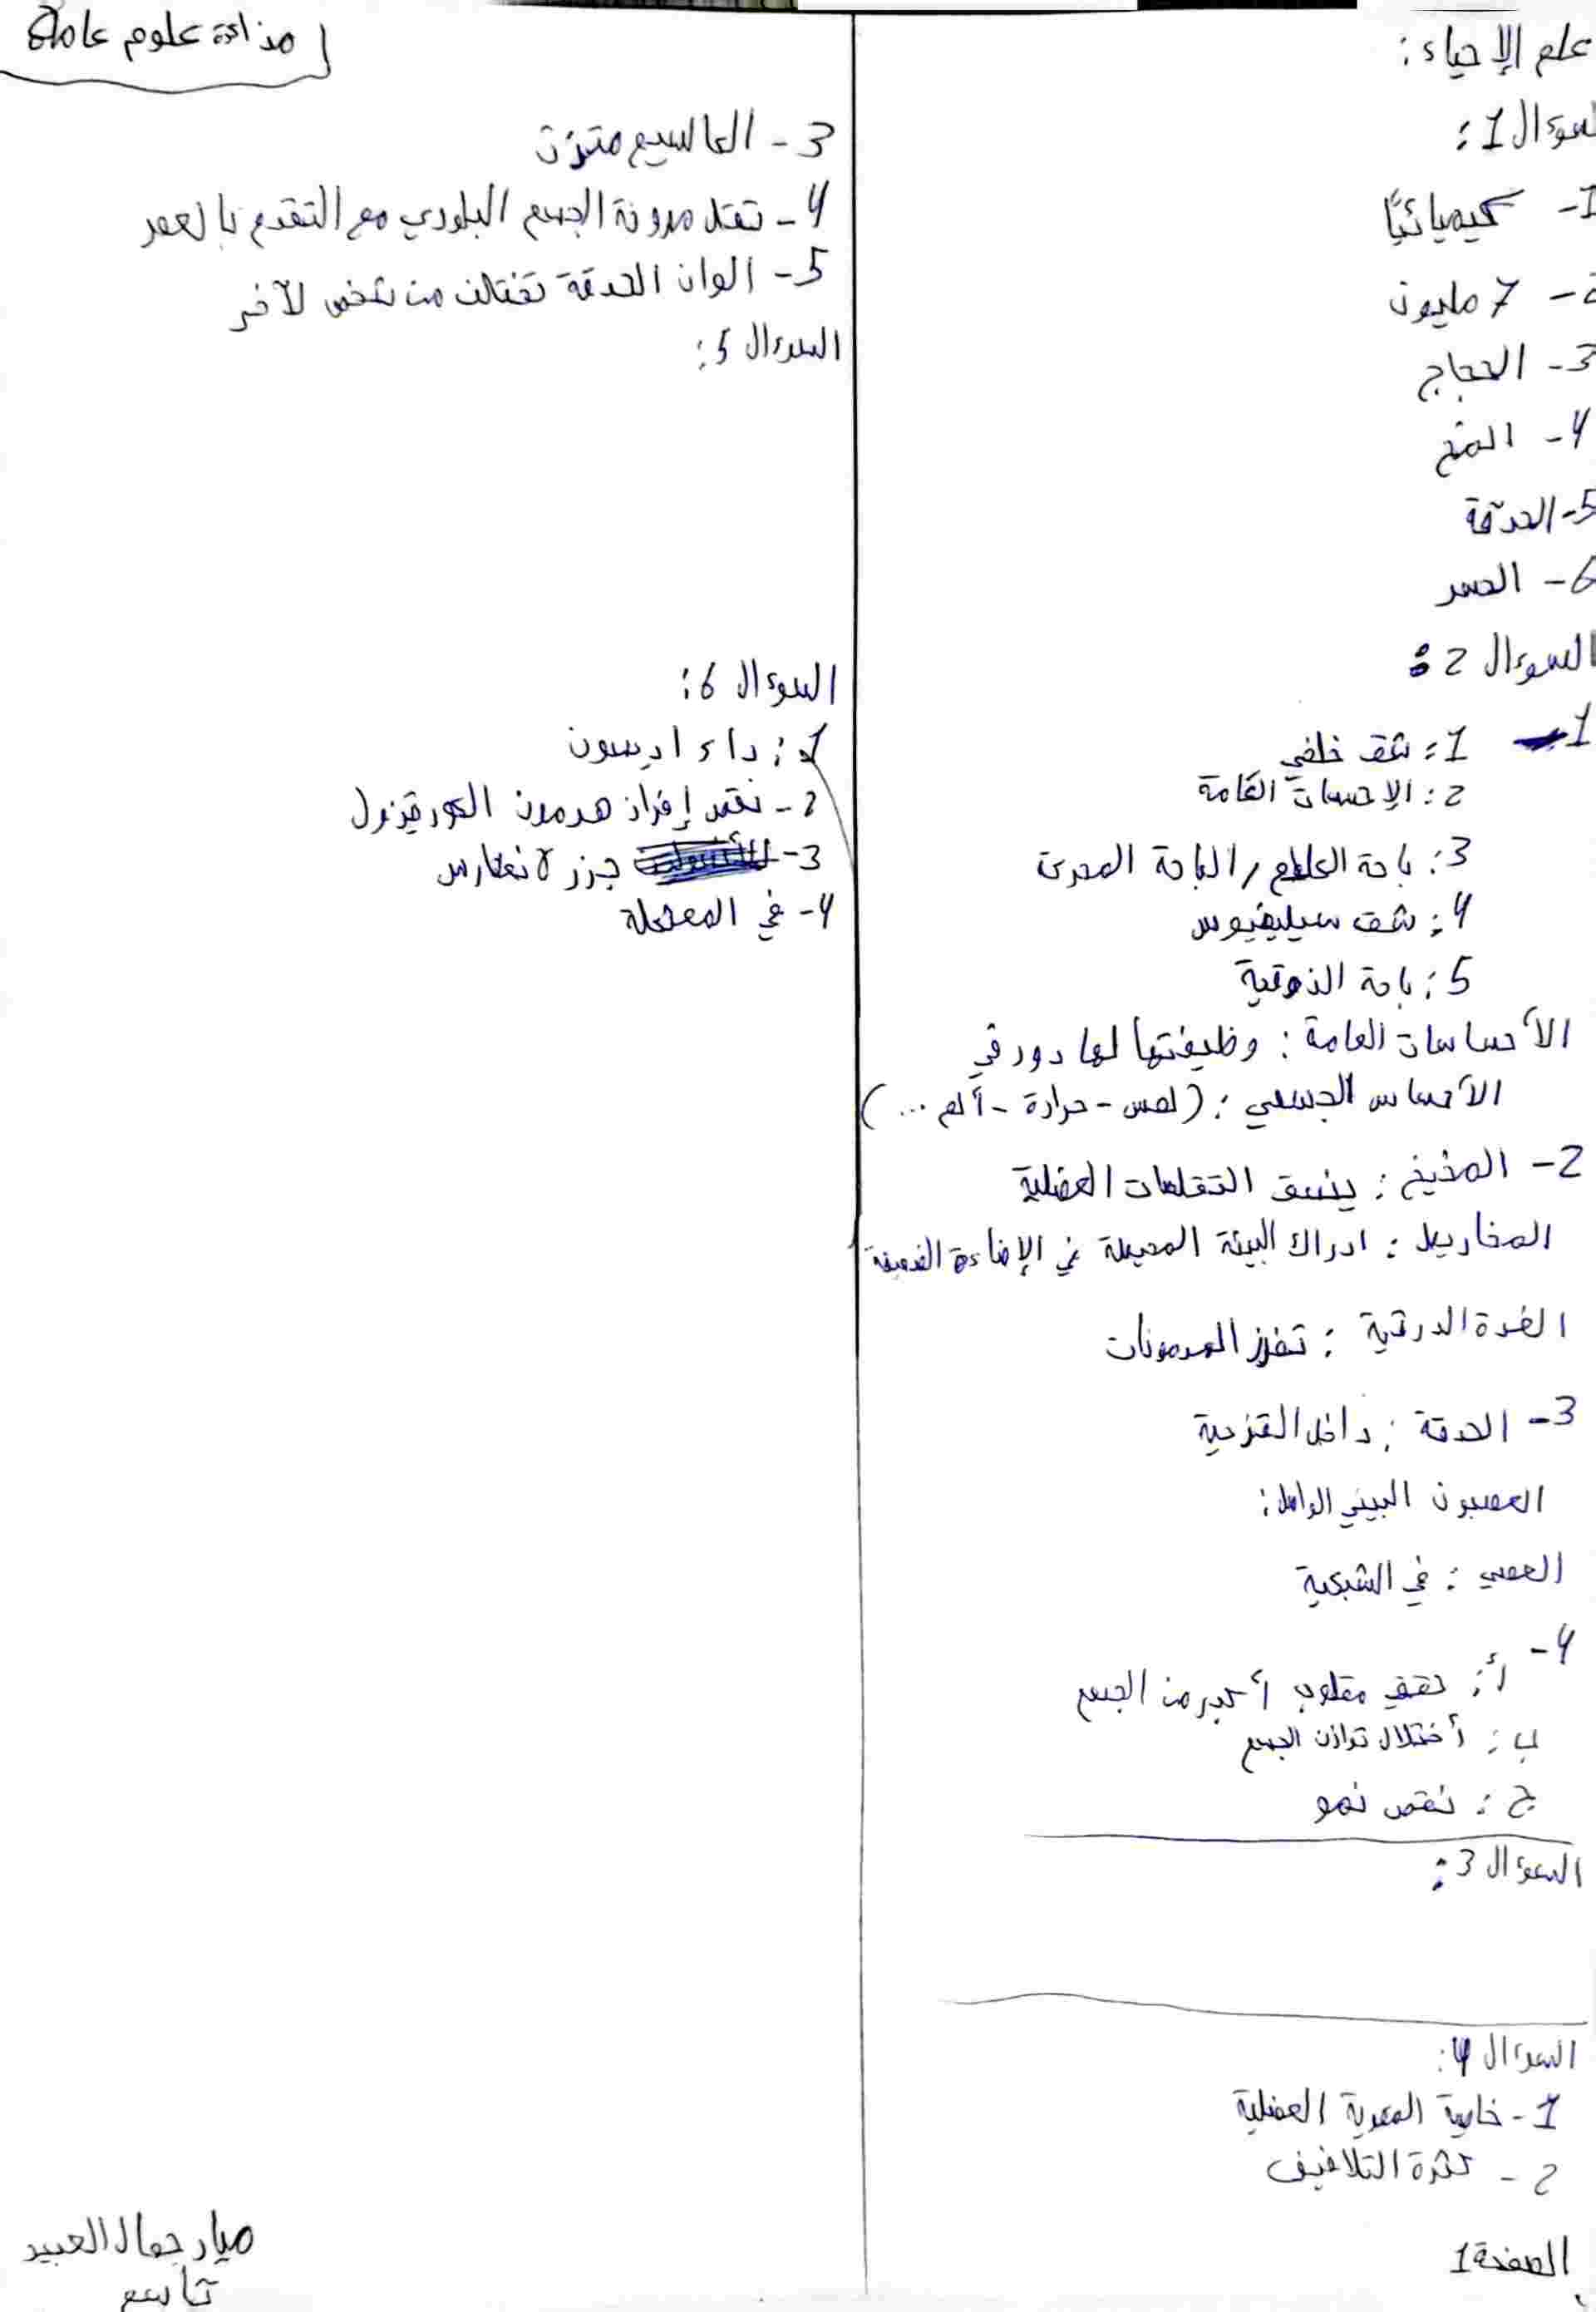 مذاكرة علوم عامة
علم الإحياء:
السؤال 1:
1- كيميائيًا
2- 7 مليون
3- الحجاج
4- المخ
5- الحدقة
6- الحسر
السؤال 2:
1- 1: شق خلفي
2: الإحسات العامة
3: باحة العلام / الباحة المحرك
4: شق سيليفيوس
5: باحة الذوقية
الأحساسات العامة: وظيفتها لها دور في
الأحساس الجسمي: (لمس - حرارة - ألم ...)
2- المخيخ: ينسق التقلصات العضلية
المخاريط: ادراك البيئة المحيطة في الإضاءة الضعيفة
الغدة الدرقية: تفرز الهرمونات
3- الحدقة: داخل القزحية
العصبون البيني الواصل:
العصي: في الشبكية
4- أ: حقيقي مقلوب أكبر من الجسم
ب: أختلال توازن الجسم
ج: نقص نمو
السؤال 3:
السؤال 4:
1- خاصية المقوية العضلية
2- كثرة التلافيف
الصفحة 1
3- العا لسيم متزن
4- تقل مرونة الجسم البلوري مع التقدم بالعمر
5- الوان الحدقة تختلف من شخص لآخر
السؤال 5:
السؤال 6:
1: داء اديسون
2- نقص إفراز هرمون الكورتيزول
3- جزر لانغارس
4- في المعثكلة
ميار جمال العبيد
تاسع